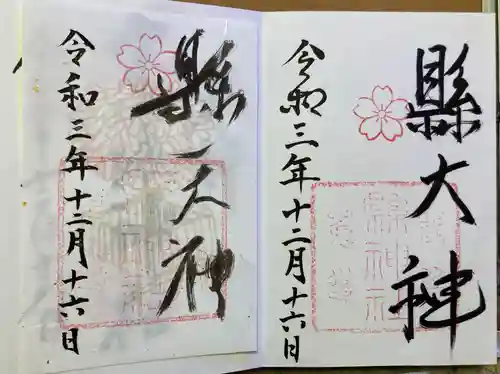 縣大神
縣神社
令和三年十二月十六日
縣大神
令和三年十二月十六日